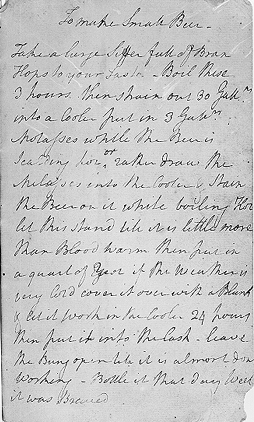 To make Small Beer
Take a large Siffer full of Bran
Hops to your Taste – Boil these
3 hours. then strain out 30 Gall.ns
into a Cooler put in 3 Gall.ns
Molasses while the Beer is
Scalding hot or rather draw the
Molasses into the Cooler & Strain
the Beer on it while boiling Hot
let this stand till it is little more
than Blood warm then put in
a quart of Yeast if the Weather is
very Cold cover it over with a Blanket
& let it work in the Cooler 24 hours
then put it into the Cask – leave
the Bung open till it is almost done
working – Bottle it that day Week
it was Brewed